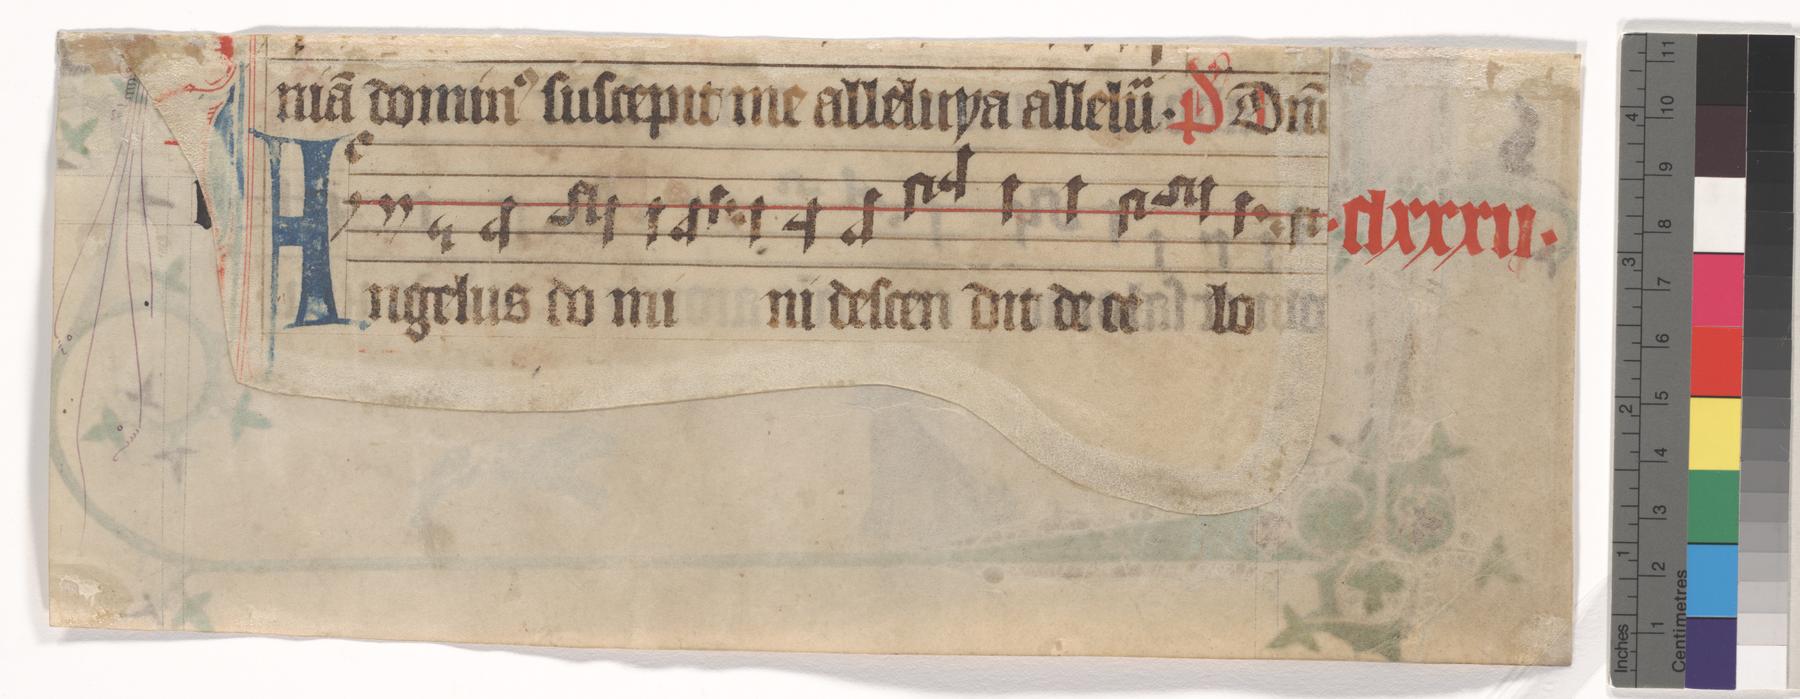 niā domin⁹ suscepit me alleluya allelu̅ia· P Dn̄i
Angelus do mi ni descen dit de ce lo
·clxxxii·
11
10
9
8
7
6
5
4
3
2
1
4
3
2
1
Inches
Centimetres